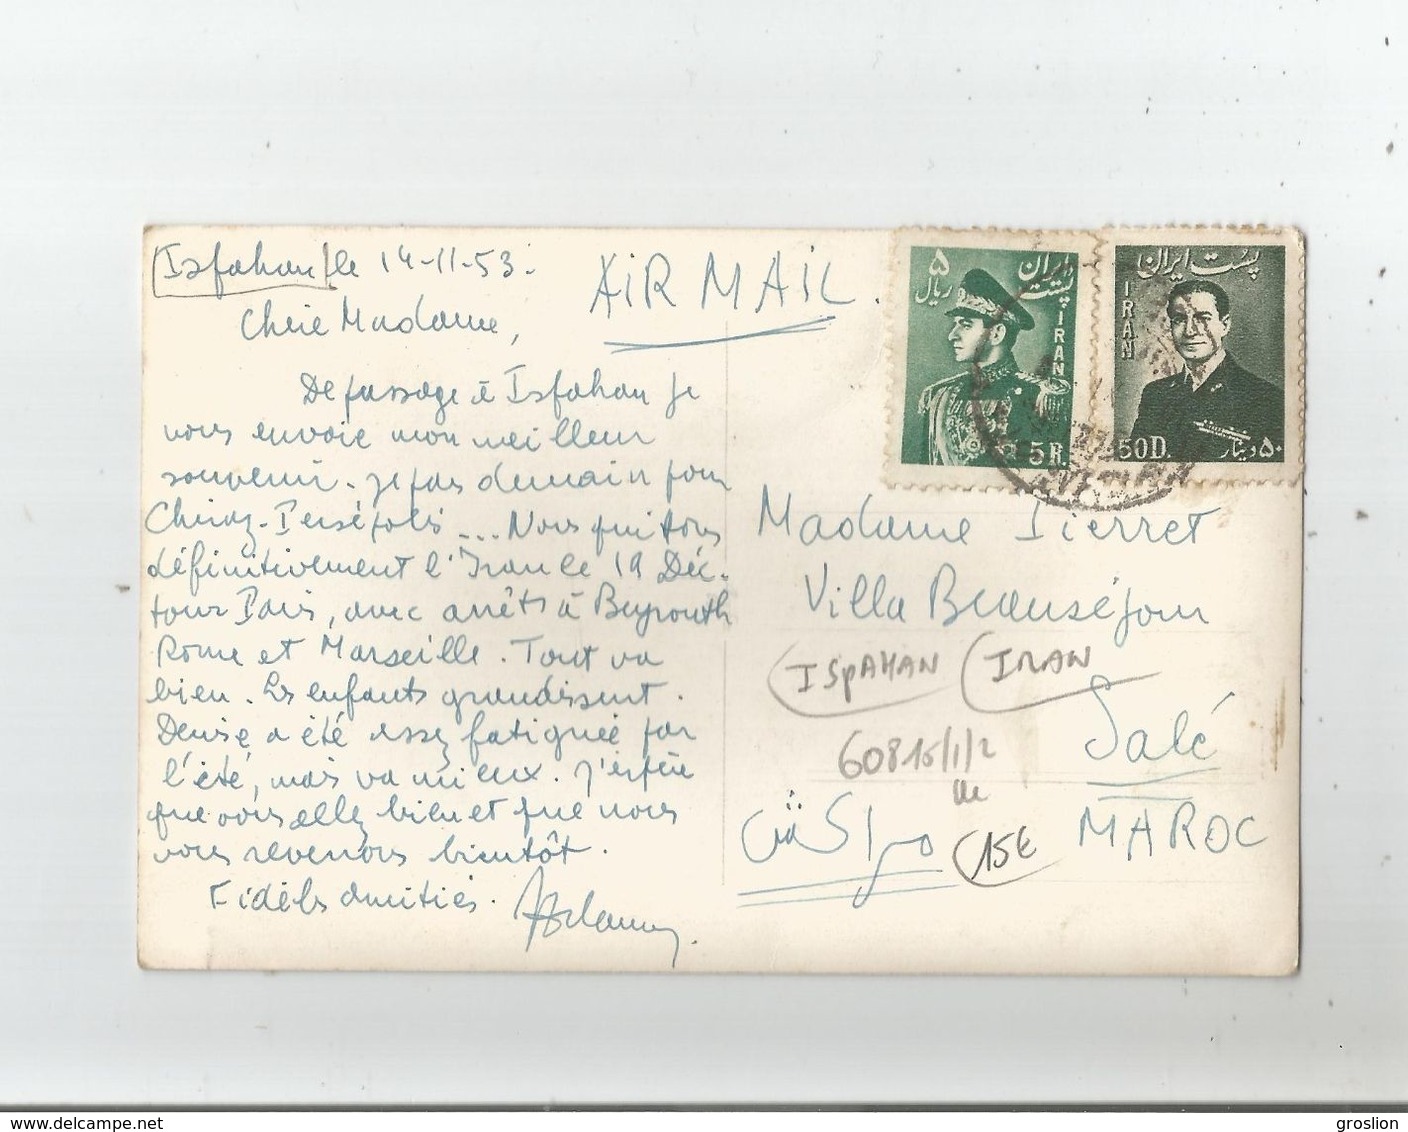 Isfahan le 14-11-53.
Chère Madame,
AIR MAIL.
De passage à Isfahan je
vous envoie mon meilleur
souvenir. Je pars demain pour
Chiraz-Persépolis... Nous quittons
définitivement l'Iran le 19 Déc.
pour Paris, avec arrêts à Beyrouth
Rome et Marseille. Tout va
bien. Les enfants grandissent.
Denise a été assez fatiguée par
l'été, mais va mieux. J'espère
que vous allez bien et que nous
vous reverrons bientôt.
Fidèles amitiés.
۵
ریال
پست ایران
IRAN
5R.
پست ایران
IRAN
50D.
۵۰ دینار
Madame Pierret
Villa Beauséjour
ISPAHAN
IRAN
Salé
60815/1/2
MAROC
15€
www.delcampe.net
groslion